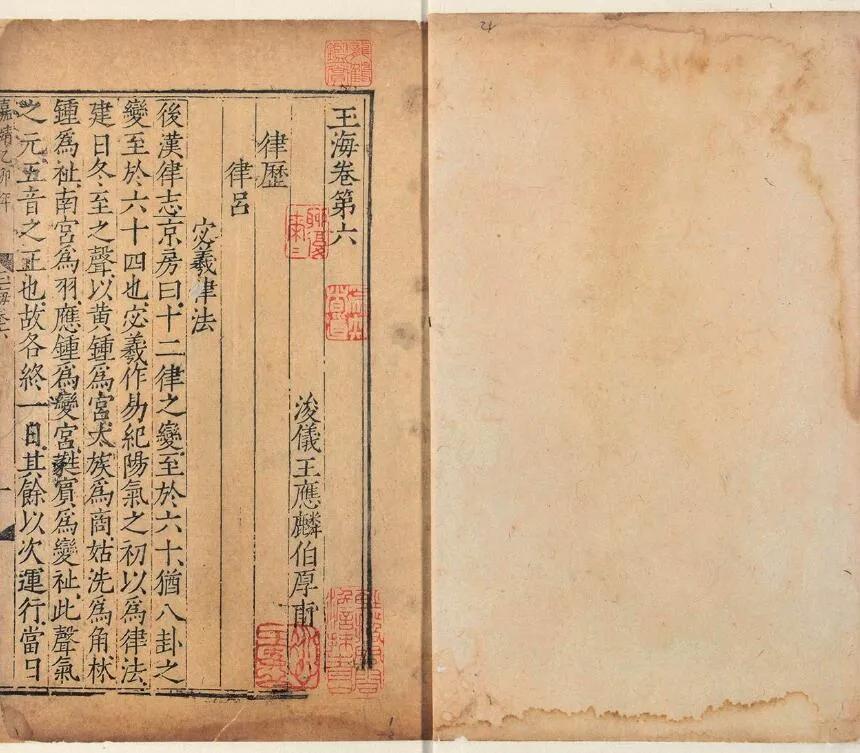 玉海卷第六
浚儀王應麟伯厚甫
律歷
律呂
宓羲律法
後漢律志京房曰十二律之變至於六十猶八卦之
變至於六十四也宓羲作易紀陽氣之初以為律法
建日冬至之聲以黃鍾為宮太族為商姑洗為角林
鍾為祉南宮為羽應鍾為變宮蕤賓為變祉此聲氣
之元五音之正也故各終一日其餘以次運行當日
嘉靖乙卯年